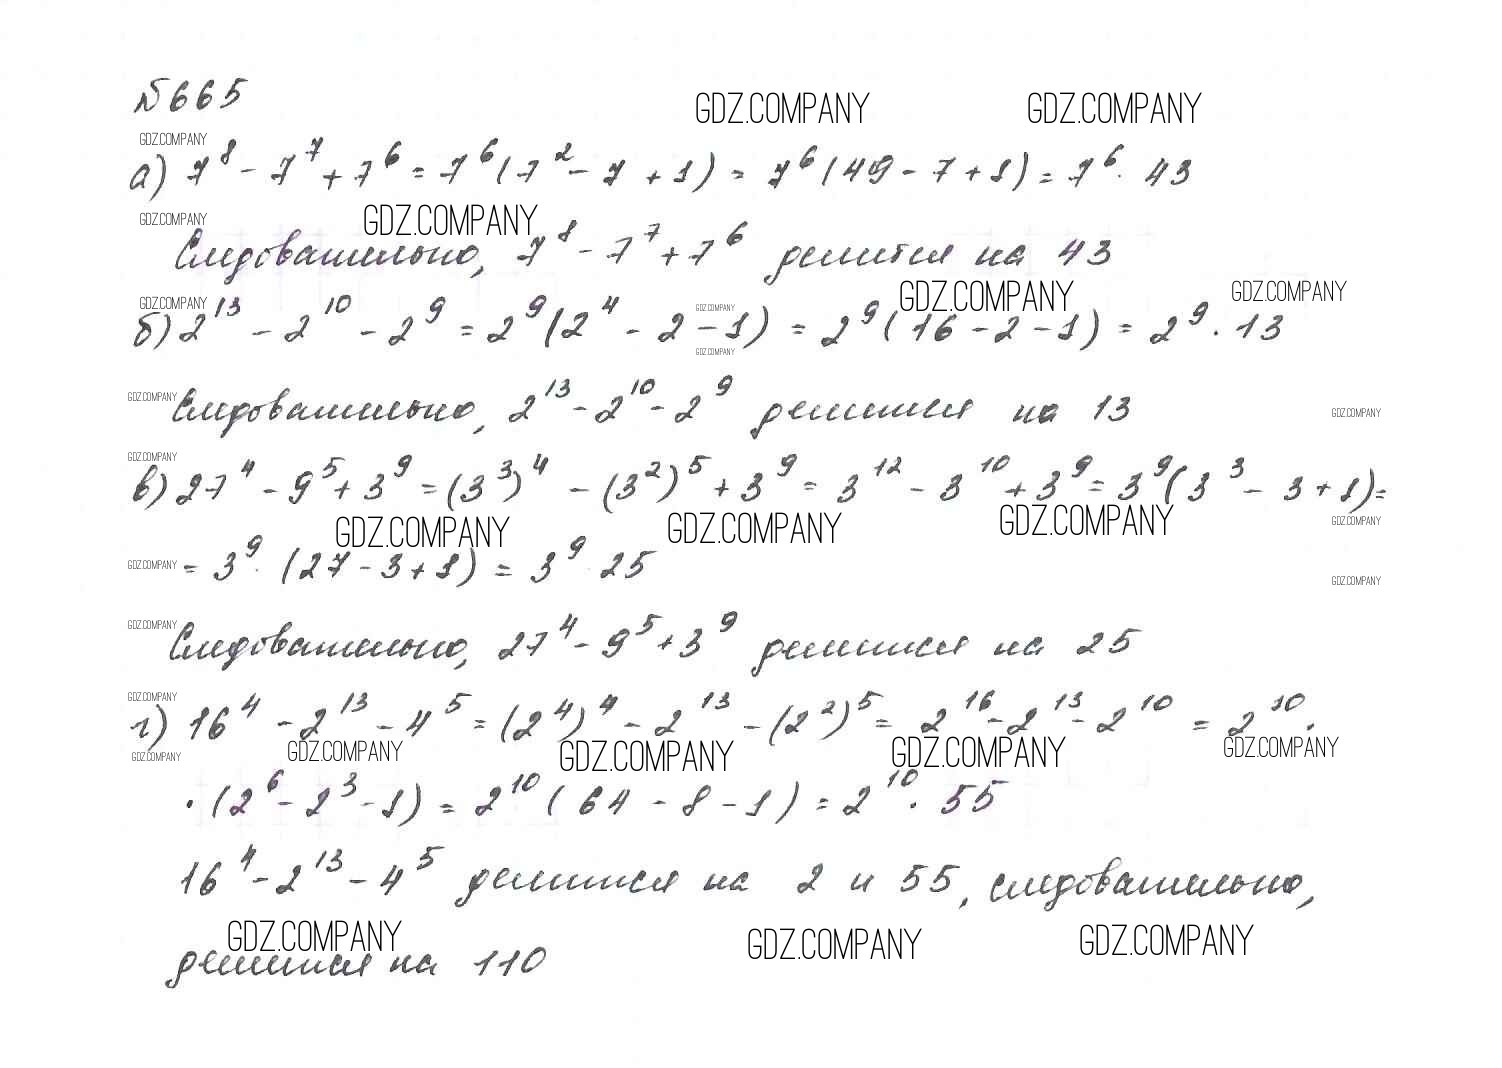 №665
GDZ.COMPANY GDZ.COMPANY
GDZ.COMPANY
а) 7⁸ - 7⁷ + 7⁶ = 7⁶(7² - 7 + 1) = 7⁶(49 - 7 + 1) = 7⁶ · 43
GDZ.COMPANY GDZ.COMPANY
Следовательно, 7⁸ - 7⁷ + 7⁶ делится на 43
GDZ.COMPANY GDZ.COMPANY GDZ.COMPANY GDZ.COMPANY
б) 2¹³ - 2¹⁰ - 2⁹ = 2⁹(2⁴ - 2 - 1) = 2⁹(16 - 2 - 1) = 2⁹ · 13
GDZ.COMPANY
GDZ.COMPANY GDZ.COMPANY
Следовательно, 2¹³ - 2¹⁰ - 2⁹ делится на 13
GDZ.COMPANY
в) 27⁴ - 9⁵ + 3⁹ = (3³)⁴ - (3²)⁵ + 3⁹ = 3¹² - 3¹⁰ + 3⁹ = 3⁹(3³ - 3 + 1) =
GDZ.COMPANY GDZ.COMPANY GDZ.COMPANY GDZ.COMPANY
GDZ.COMPANY GDZ.COMPANY
= 3⁹ · (27 - 3 + 1) = 3⁹ · 25
GDZ.COMPANY
Следовательно, 27⁴ - 9⁵ + 3⁹ делится на 25
GDZ.COMPANY
г) 16⁴ - 2¹³ - 4⁵ = (2⁴)⁴ - 2¹³ - (2²)⁵ = 2¹⁶ - 2¹³ - 2¹⁰ = 2¹⁰ ·
GDZ.COMPANY GDZ.COMPANY GDZ.COMPANY GDZ.COMPANY GDZ.COMPANY
· (2⁶ - 2³ - 1) = 2¹⁰(64 - 8 - 1) = 2¹⁰ · 55
16⁴ - 2¹³ - 4⁵ делится на 2 и 55, следовательно,
GDZ.COMPANY GDZ.COMPANY GDZ.COMPANY
делится на 110